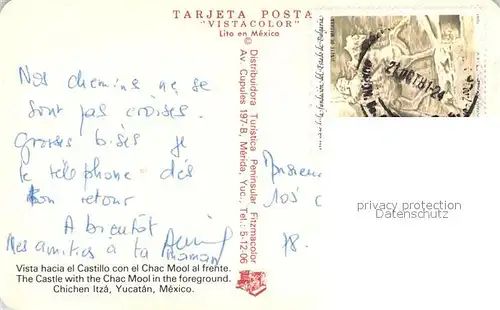 TARJETA POSTA
"VISTACOLOR"
Lito en México
Nos chemins ne se
sont pas croisés.
Grosses bises je
te téléphone dès
mon retour
A bientôt
Mes amitiés à ta maman
Vista hacia el Castillo con el Chac Mool al frente.
The Castle with the Chac Mool in the foreground.
Chichen Itzá, Yucatán, México.
© Distribuidora Turística Peninsular Fitzmacolor
Av. Cupules 197-B, Mérida, Yuc., Tel.: 5-12-06
de la fundación del Estado de Bulgaria
Monsieur
105
78.
privacy protection
Datenschutz